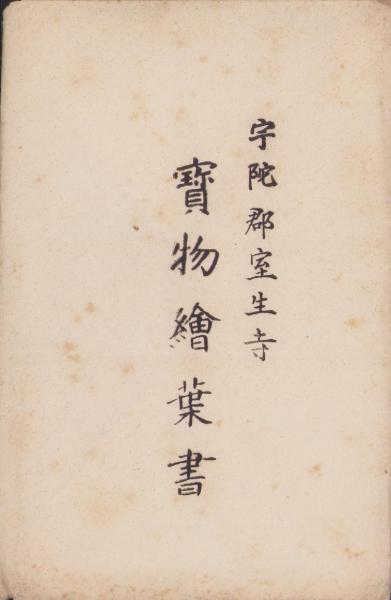 宇陀郡室生寺
寳物繪葉書